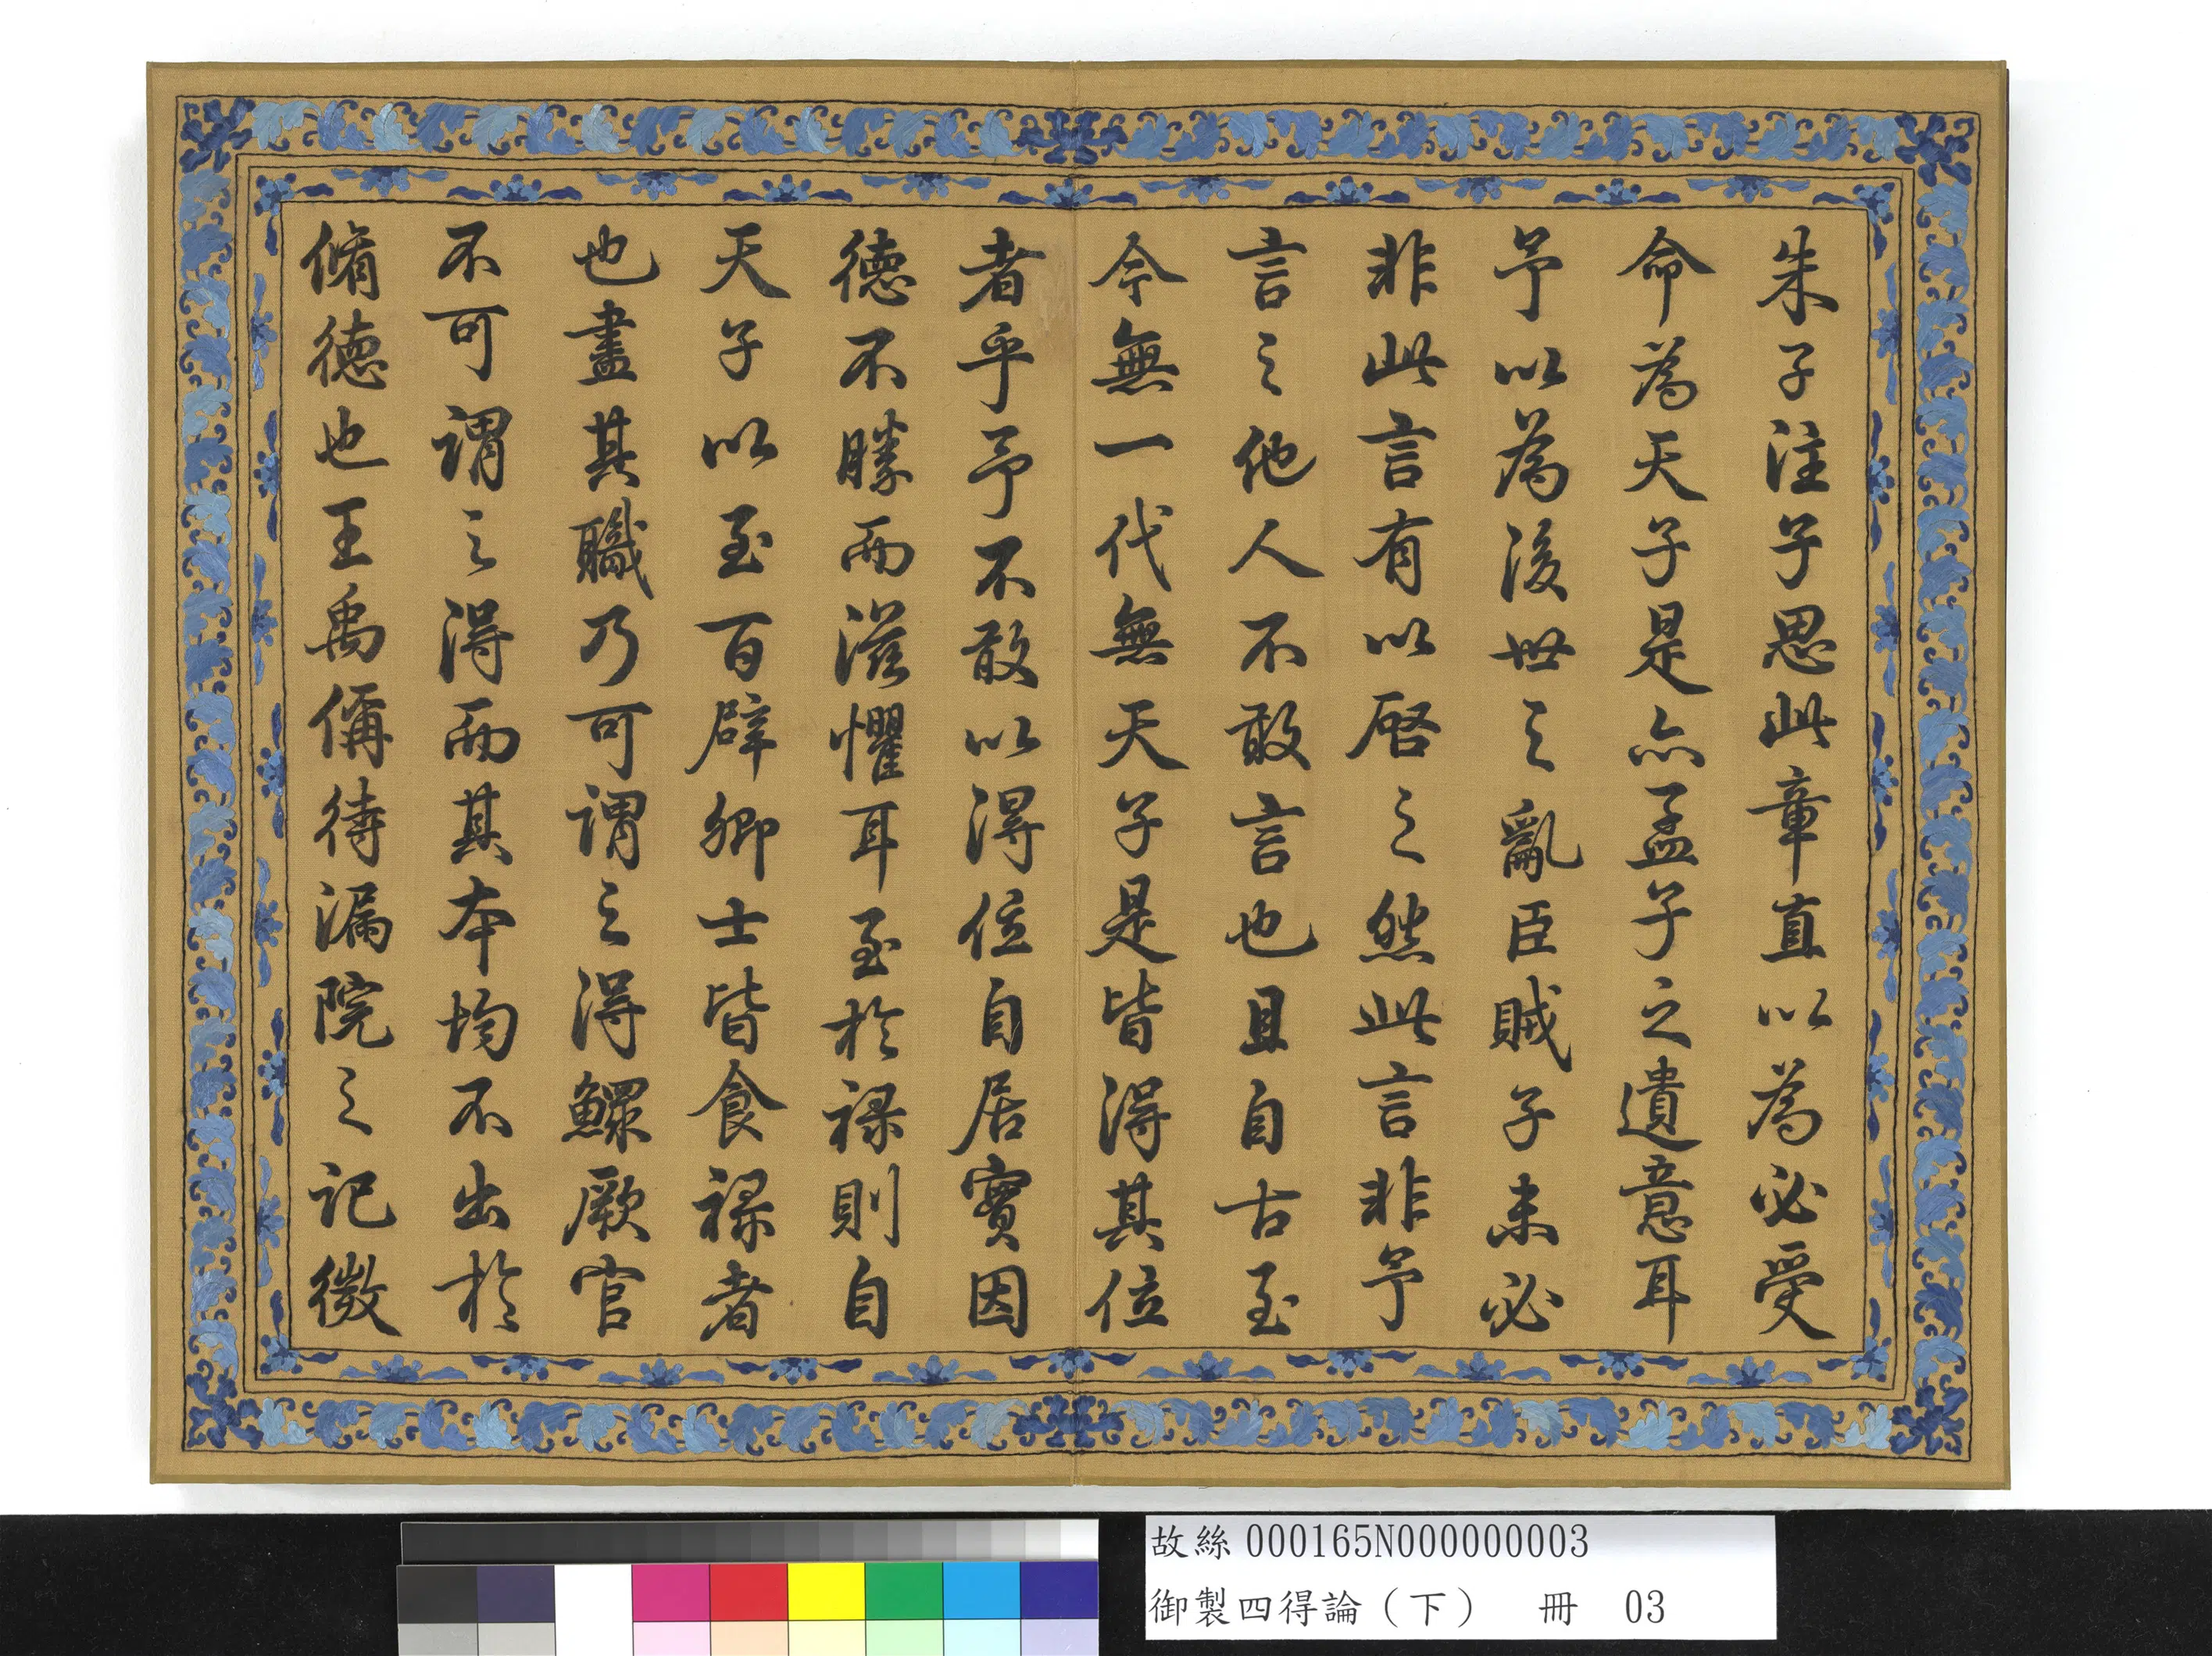 朱子注子思此章直以為必受
命為天子是亦孟子之遺意耳
予以為後世之亂臣賊子未必
非此言有以啓之然此言非予
言之他人不敢言也且自古至
今無一代無天子是皆得其位
者乎予不敢以得位自居實因
德不勝而滋懼耳至於祿則自
天子以至百辟卿士皆食祿者
也盡其職乃可謂之得鰥厥官
不可謂之得而其本均不出於
脩德也王禹偁待漏院之記微
故絲000165N000000003
御製四得論（下） 冊 03